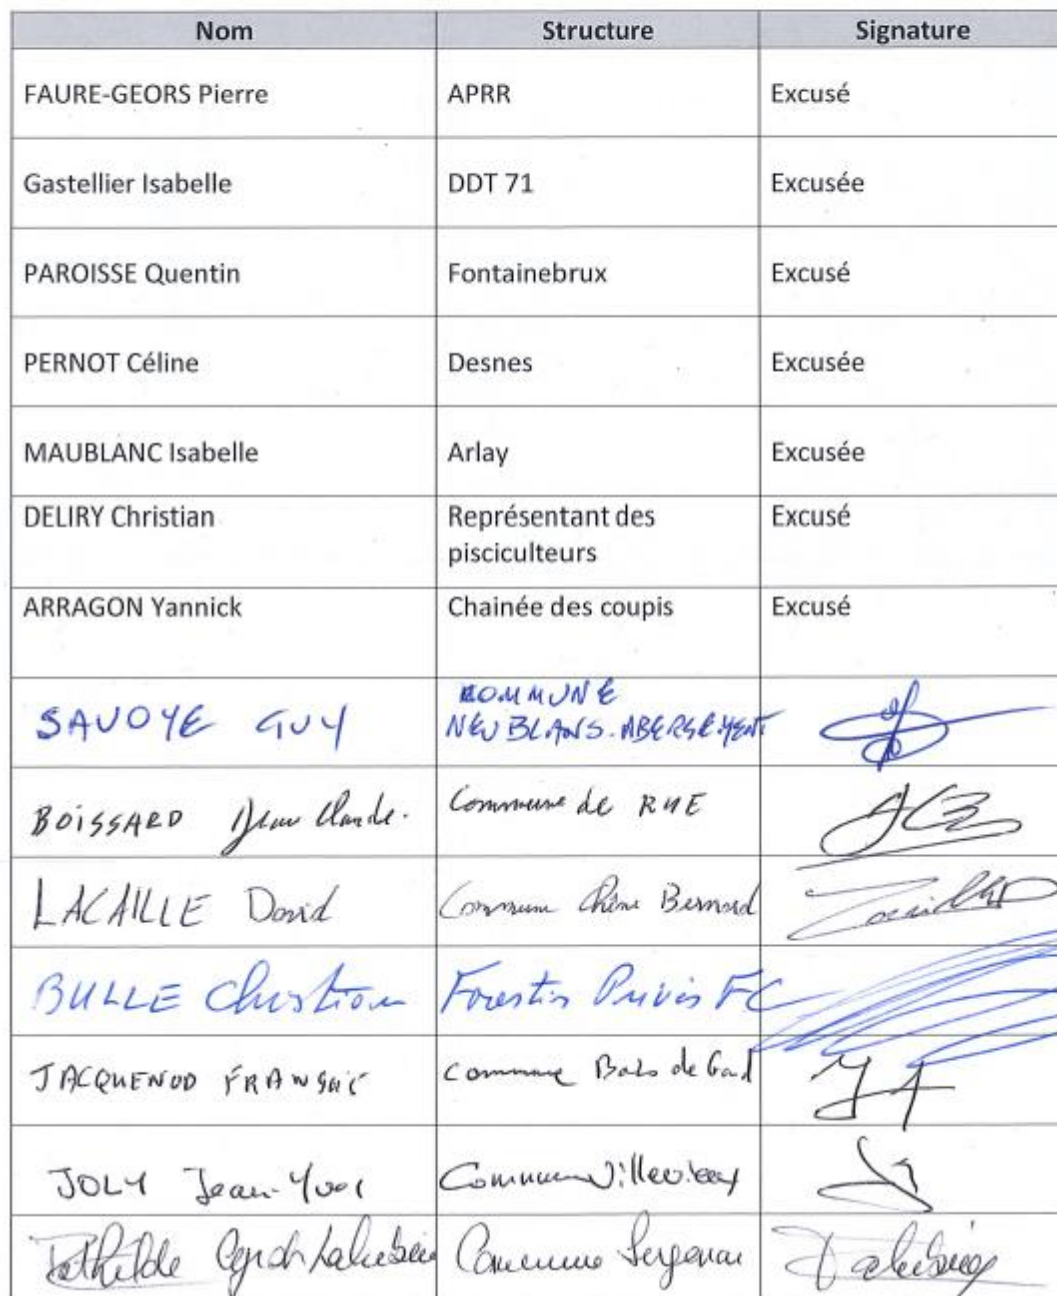 Nom Structure Signature
FAURE-GEORS Pierre APRR Excusé
Gastellier Isabelle DDT 71 Excusée
PAROISSE Quentin Fontainebrux Excusé
PERNOT Céline Desnes Excusée
MAUBLANC Isabelle Arlay Excusée
DELIRY Christian Représentant des Excusé
pisciculteurs
ARRAGON Yannick Chainée des coupis Excusé
COMMUNE
SAVOYE GUY NEUBLANS-ABERGEMENT
BOISSARD Jean Claude. Commune de RYE
LACAILLE David Commune Chêne Bernard
BULLE Christian Forestiers Privés FC
JACQUENOD Commune Bois de Gand
JOLY Jean-Yves Commune Villevieux
Commune